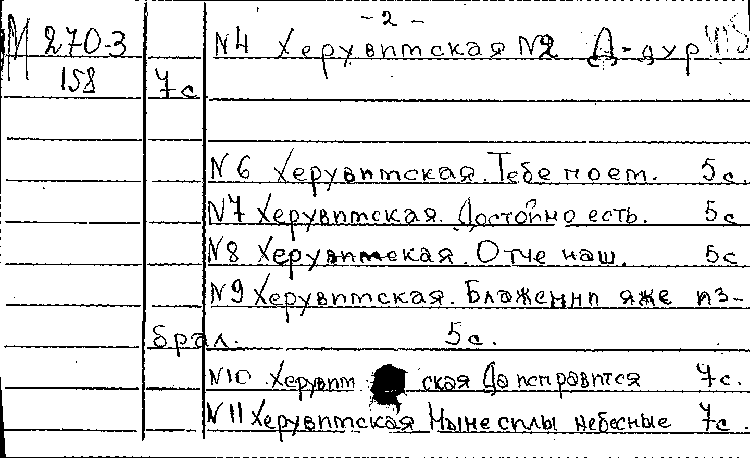 - 2 -
М 270-3 N4 Херувитская N2 Д-дур
158 7с
N6 Херувитская. Тебе поем. 5с.
N7 Херувитская. Достойно есть. 5с
N8 Херувитская. Отче наш. 5с
N9 Херувитская. Блаженни яже из-
брал. 5с.
N10 Херувит ская Да исправится 7с.
N11 Херувитская Ныне силы небесные 7с.